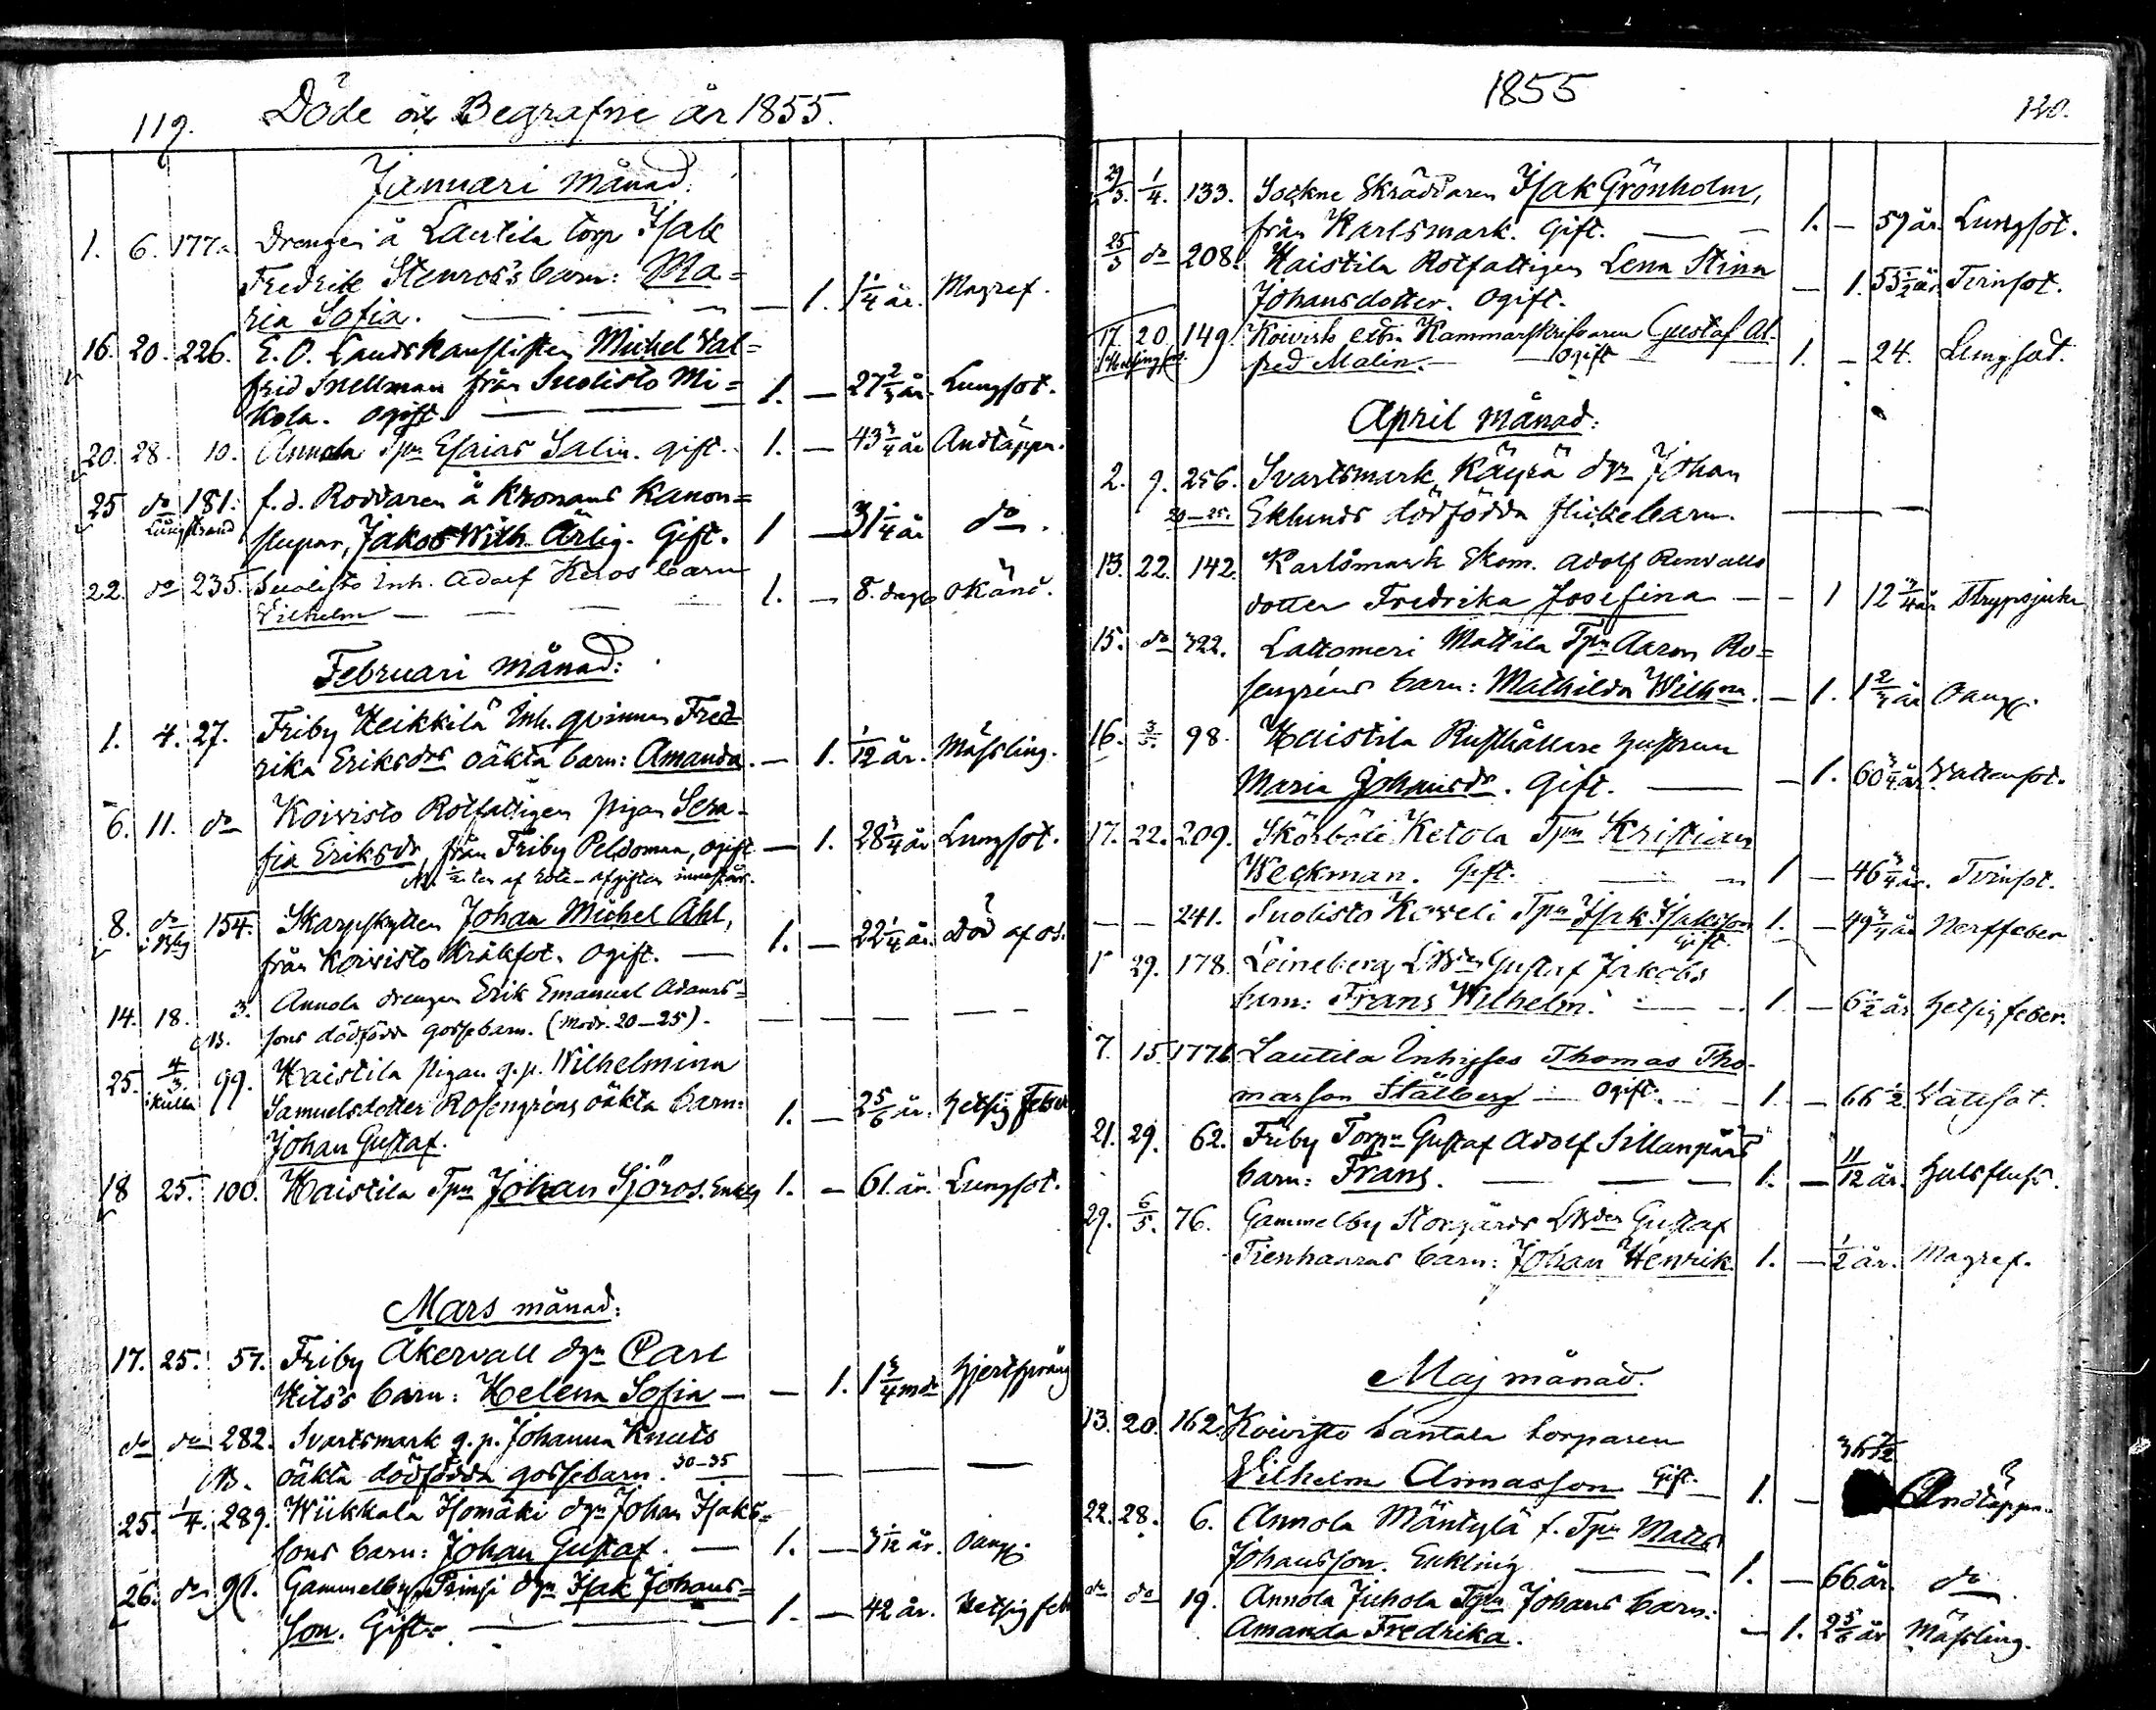 119. Döde och Begrafne år 1855.
Januari månad.
1. 6. 177a Drengen å Lautila torp Isak
Fredrik Stenros's barn: Ma=
ria Sofia. — 1. 1 1/4 år. Magref.
16. 20. 226. E. O. Landskanslisten Michel Val=
frid Snellman från Suolisto Mi=
kola. ogift. 1. — 27 2/3 år. Lungsot.
20. 28. 10. Annola Tpn Esaias Salin. gift. 1. — 43 3/4 år Andtäppa.
25 do 181. f.d. Roddaren å Kronans Kanon=
Långstrand slupar, Jakob Wilh. Ärlig. Gift. 1 — 31 1/4 år do.
22. do 235. Suolisto Inh. Adolf Keros barn
Vilhelm 1. — 8. dagar okänd.
Februari månad:
1. 4. 27. Friby Heikkilä Inh. qvinnan Fred=
rika Eriksdrs oäkta barn: Amanda. — 1. 1/12 år. Mässling.
6. 11. do Koivisto Rotfattigen pigan Sera-
fia Eriksdr, från Friby Peldoman, ogift — 1. 28 3/4 år Lungsot.
NB. 1/2 ten af Rote-afgiften innestår.
8. do 154. Skarpskytten Johan Michel Ahl,
från Koivisto Kråkfot. Ogift. 1. — 22 1/4 år. Död af os.
14. 18. 3. Annola drengen Erik Emanuel Adams=
NB. sons dödfödda gossebarn. (Modr. 20–25).
25. 4/3. 99. Haistila pigan q.p. Wilhelmina
i Kulla Samuelsdotter Rosengréns oäkta barn:
Johan Gustaf. 1. — 2 5/6 år. Hetsig feber
18 25. 100. Haistila Tpn Johan Sjöros. Enkl. 1. — 61. år. Lungsot.
Mars månad:
17. 25. 57. Friby Åkervall dgn Carl
Hits's barn: Helena Sofia — — 1. 1 3/4 md Hjertsprång
do do 282. Svartsmark q.p. Johanna Knuts
NB. oäkta dödfödda gossebarn. 30–35
25. 1/4. 289. Wiikkala Isomäki dgn Johan Isaks=
sons barn: Johan Gustaf. 1. — 3 1/12 år.
26. do 91. Gammelby Prinsi dgn Isak Johans=
son. Gift. 1. — 42 år. Hetsig feb
1855
120.
29/3. 1/4. 133. Sockne Skräddaren Isak Grönholm,
från Karlsmark. Gift. 1. — 59 år. Lungsot.
25/3 do 208. Haistila Rotfattigen Lena Stina
Johansdotter. Ogift. — 1. 55 1/2 år. Tvinsot.
17 20. 149. Koivisto extra Kammarskrifvaren Gustaf Al-
i Helsingfors fred Malin. Ogift 1. — 24. Lungsot.
April månad:
2. 9. 256. Svartsmark Käyrä dgn Johan
20–25. Eklunds dödfödda flickebarn.
13. 22. 142. Karlsmark Skom. Adolf Renvalls
dotter Fredrika Josefina — — 1 12 3/4 år Strypsjuka
15. do 322. Lattomeri Mattila Tpn Aaron Ro=
sengréns barn: Mathilda Wilhna. — 1. 1 2/3 år
16. 3/5. 98. Haistila Rusthållare hustrun
Maria Johansdr. Gift. — 1. 60 3/4 år. Vattensot.
17. 22. 209. Skörböle Ketola Tpn Kristian
Weckman. Gift. 1 — 46 3/4 år. Tvinsot.
— — 241. Suolisto Kiveli Tpn Isak Isaksson
gift. 1. — 49 3/4 år Nerffeber
1 29. 178. Leineberg Gustaf Jakobs
barn: Frans Wilhelm. 1. — 6 1/2 år Hetsig feber.
7. 15. 177b Lautila Inhyses Thomas Tho-
masson Stålberg Ogift. 1. — 66 1/2. Vattusot.
21. 29. 62. Friby Torpn Gustaf Adolf Sillanpääs
barn: Frans. 1. — 11/12 år. Halsfluss.
29. 6/5. 76. Gammelby Storgårds Gustaf
Tienhaaras barn: Johan Henrik 1. — 1/2 år. Magref.
Maj månad.
13. 20. 162. Koivisto Santala torparen
Vilhelm Annasson Gift. 1. — 36 1/2 Andtäppa.
22. 28. 6. Annola Mäntylä f. Tpn Matts
Johansson. Enkling 1. — 66 år. do
do do 19. Annola Juhola Tpn Johans barn:
Amanda Fredrika. — 1. 2 5/6 år Mässling.